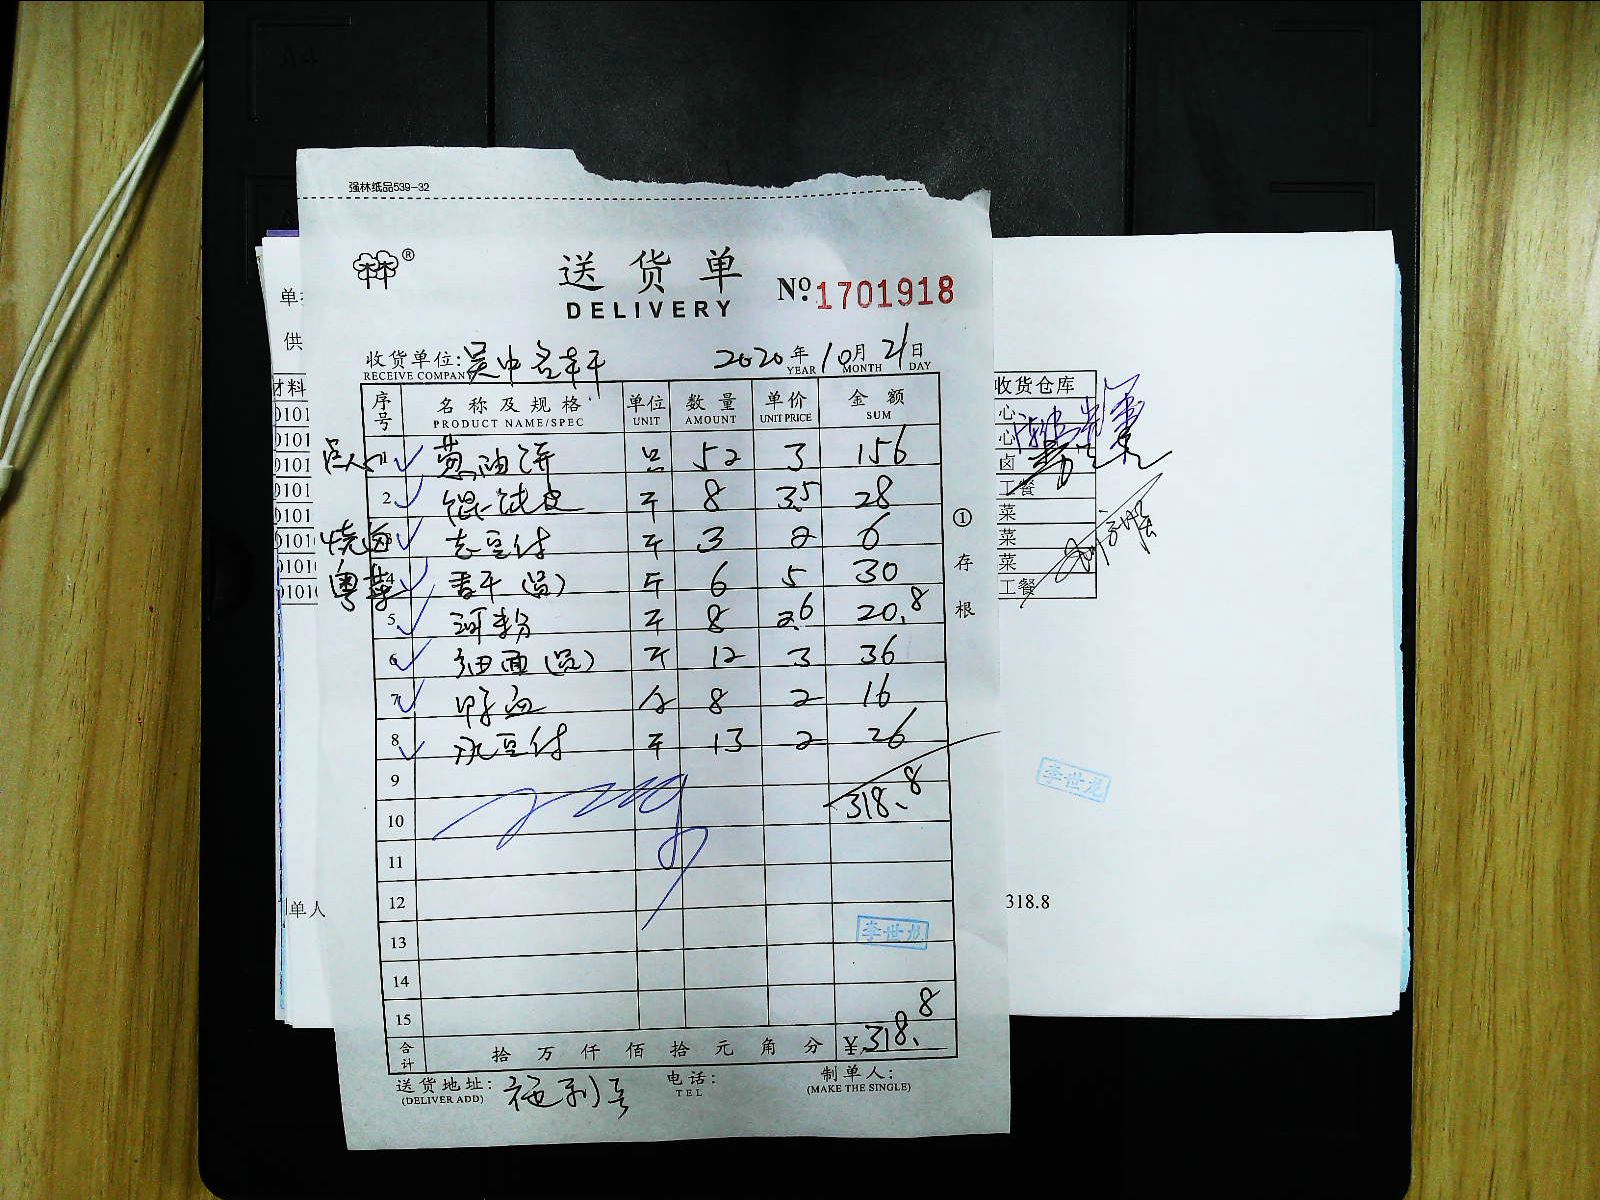 强林纸品539-32
®
送货单
DELIVERY
Nº 1701918
收货单位: 吴中名丰干 2020年10月21日
RECEIVE COMPANY YEAR MONTH DAY
序号 名称及规格 单位 数量 单价 金额
PRODUCT NAME/SPEC UNIT AMOUNT UNIT PRICE SUM
1 葱油饼 只 52 3 156
2 馄饨皮 斤 8 3.5 28
烧卤 3 老豆付 斤 3 2 6
粤菜 4 香干(员) 斤 6 5 30
5 河粉 斤 8 2.6 20.8
6 细面(员) 斤 12 3 36
7 鸭血 8 2 16
8 豆付 斤 13 2 26
9
10 318.8
11
12
13 李世龙
14
15
合计 拾万仟佰拾元角分 ¥318.8
送货地址: 电话: 制单人:
(DELIVER ADD) TEL (MAKE THE SINGLE)
①存根
单
供
材料
单人
收货仓库
心
心
卤
工餐
菜
菜
菜
工餐
李世龙
318.8